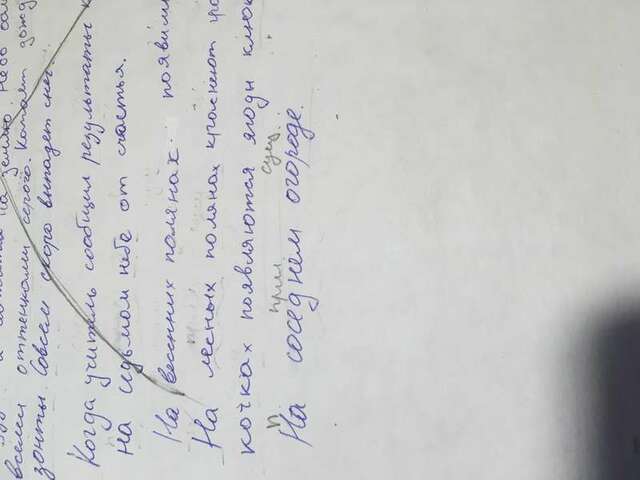 на землю. Небо
всеми оттенками серого. Капает
зонты. Совсем скоро выпадет снег.
Когда учитель сообщил результаты
на седьмом небе от счастья.
На весенних полянах
На лесных полянах краснеют
кочках появляются ягоды
п прил. сущ.
На соседнем огороде.